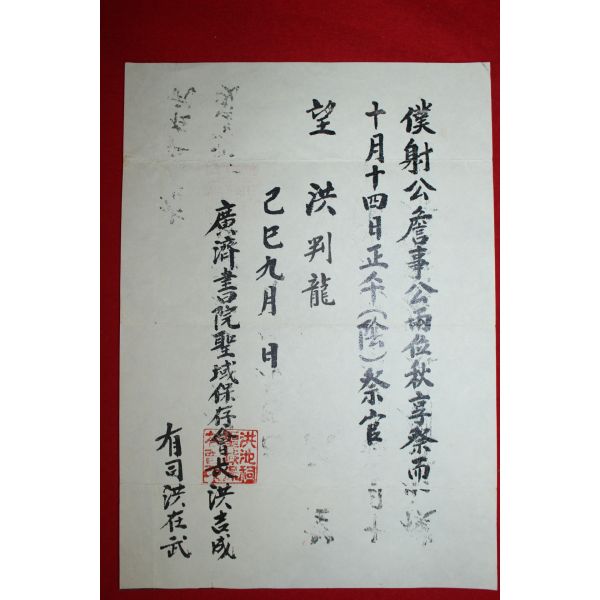 僕射公詹事公兩位秋享祭而
十月十四日正午(陰)祭官
望 洪判龍
己巳九月 日
廣濟書院聖域保存會長洪吉成
有司洪在武
洪池祠